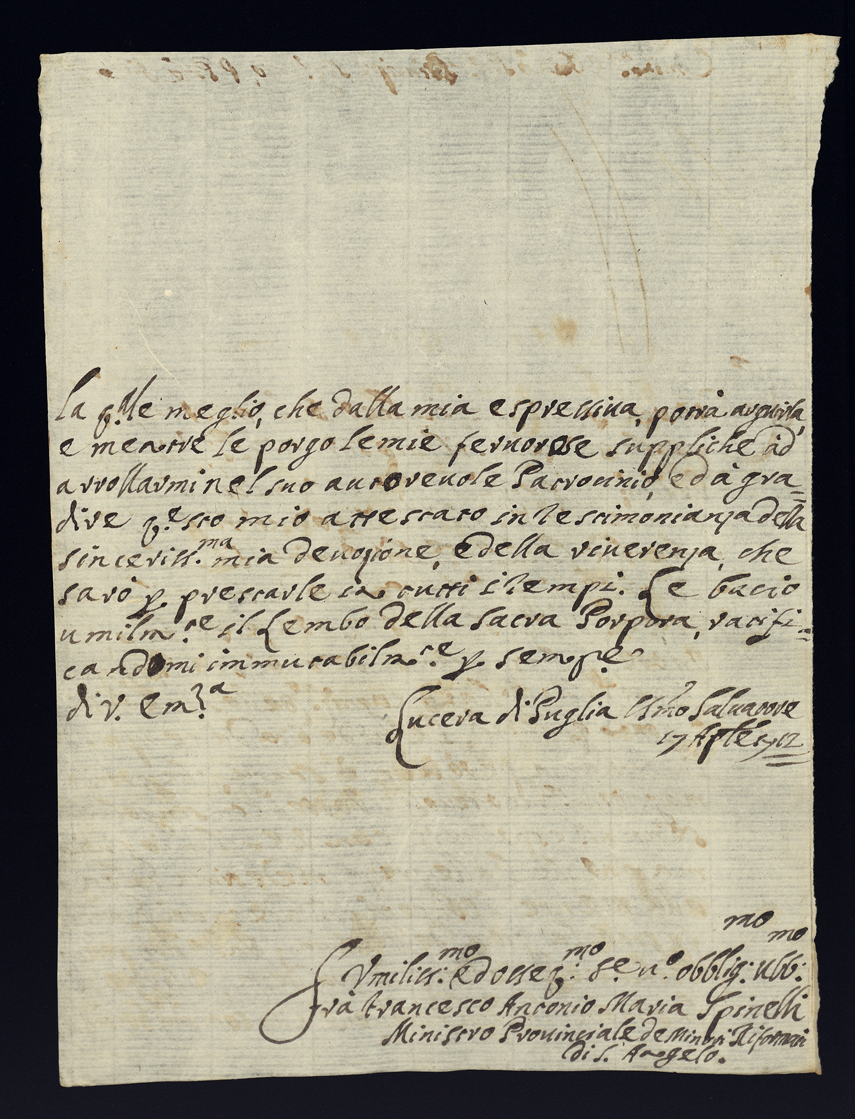 la q.le meglio, che dalla mia espressiva, potrà arguirla,
e mentre le porgo le mie fervorose suppliche ad
arrollarmi nel suo autorevole Patrocinio, ed à gra=
dire q.esto mio attestato in testimonianza della
sinceriss.ma mia devozione, e della riverenza, che
sarò p. prestarle in tutti i tempi. Le bacio
umilm.te il Lembo della Sacra Porpora, ratifi=
candomi immutabilm.te p. semp.e
di V. Em.za
Lucera di Puglia SS.mo Salvatore
17 Ap.le 1712
Umiliss.mo ed osseq.mo Se.vo obblig.mo Ubb.mo
Frà Francesco Antonio Maria Spinelli
Ministro Provinciale de Minori Riformati
di S. Angelo.